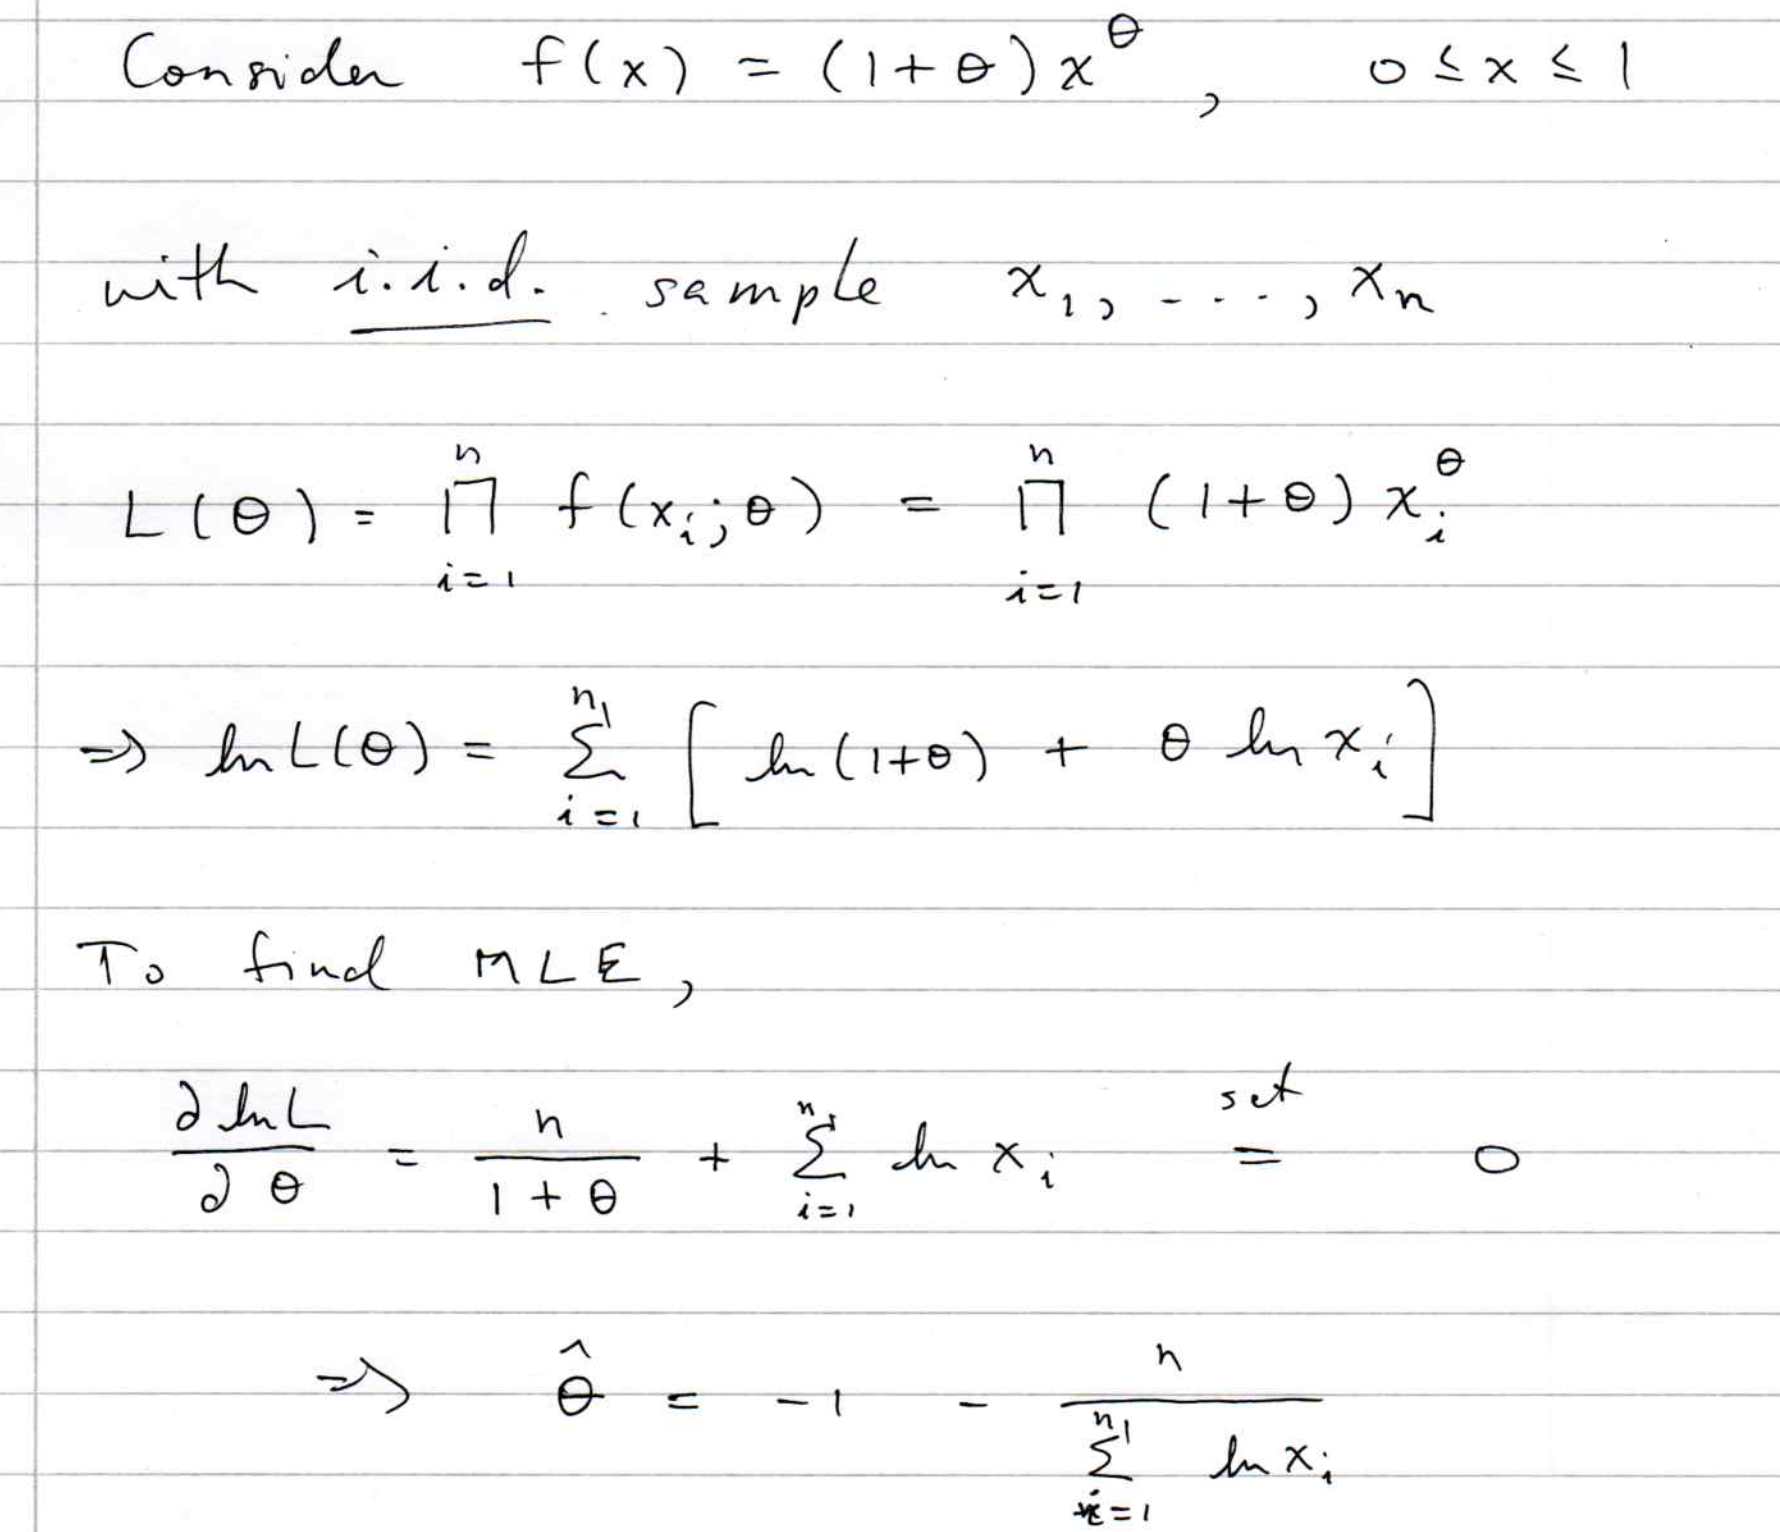 Consider f(x) = (1+θ) x^θ , 0 ≤ x ≤ 1
with i.i.d. sample x_1, - - - ·, x_n
L(θ) = ∏_{i=1}^{n} f(x_i; θ) = ∏_{i=1}^{n} (1+θ) x_i^θ
⇒ ln L(θ) = ∑_{i=1}^{n} [ ln(1+θ) + θ ln x_i ]
To find MLE,
∂ ln L / ∂ θ = n / (1+θ) + ∑_{i=1}^{n} ln x_i set = 0
⇒ θ̂ = -1 - n / ∑_{i=1}^{n} ln x_i